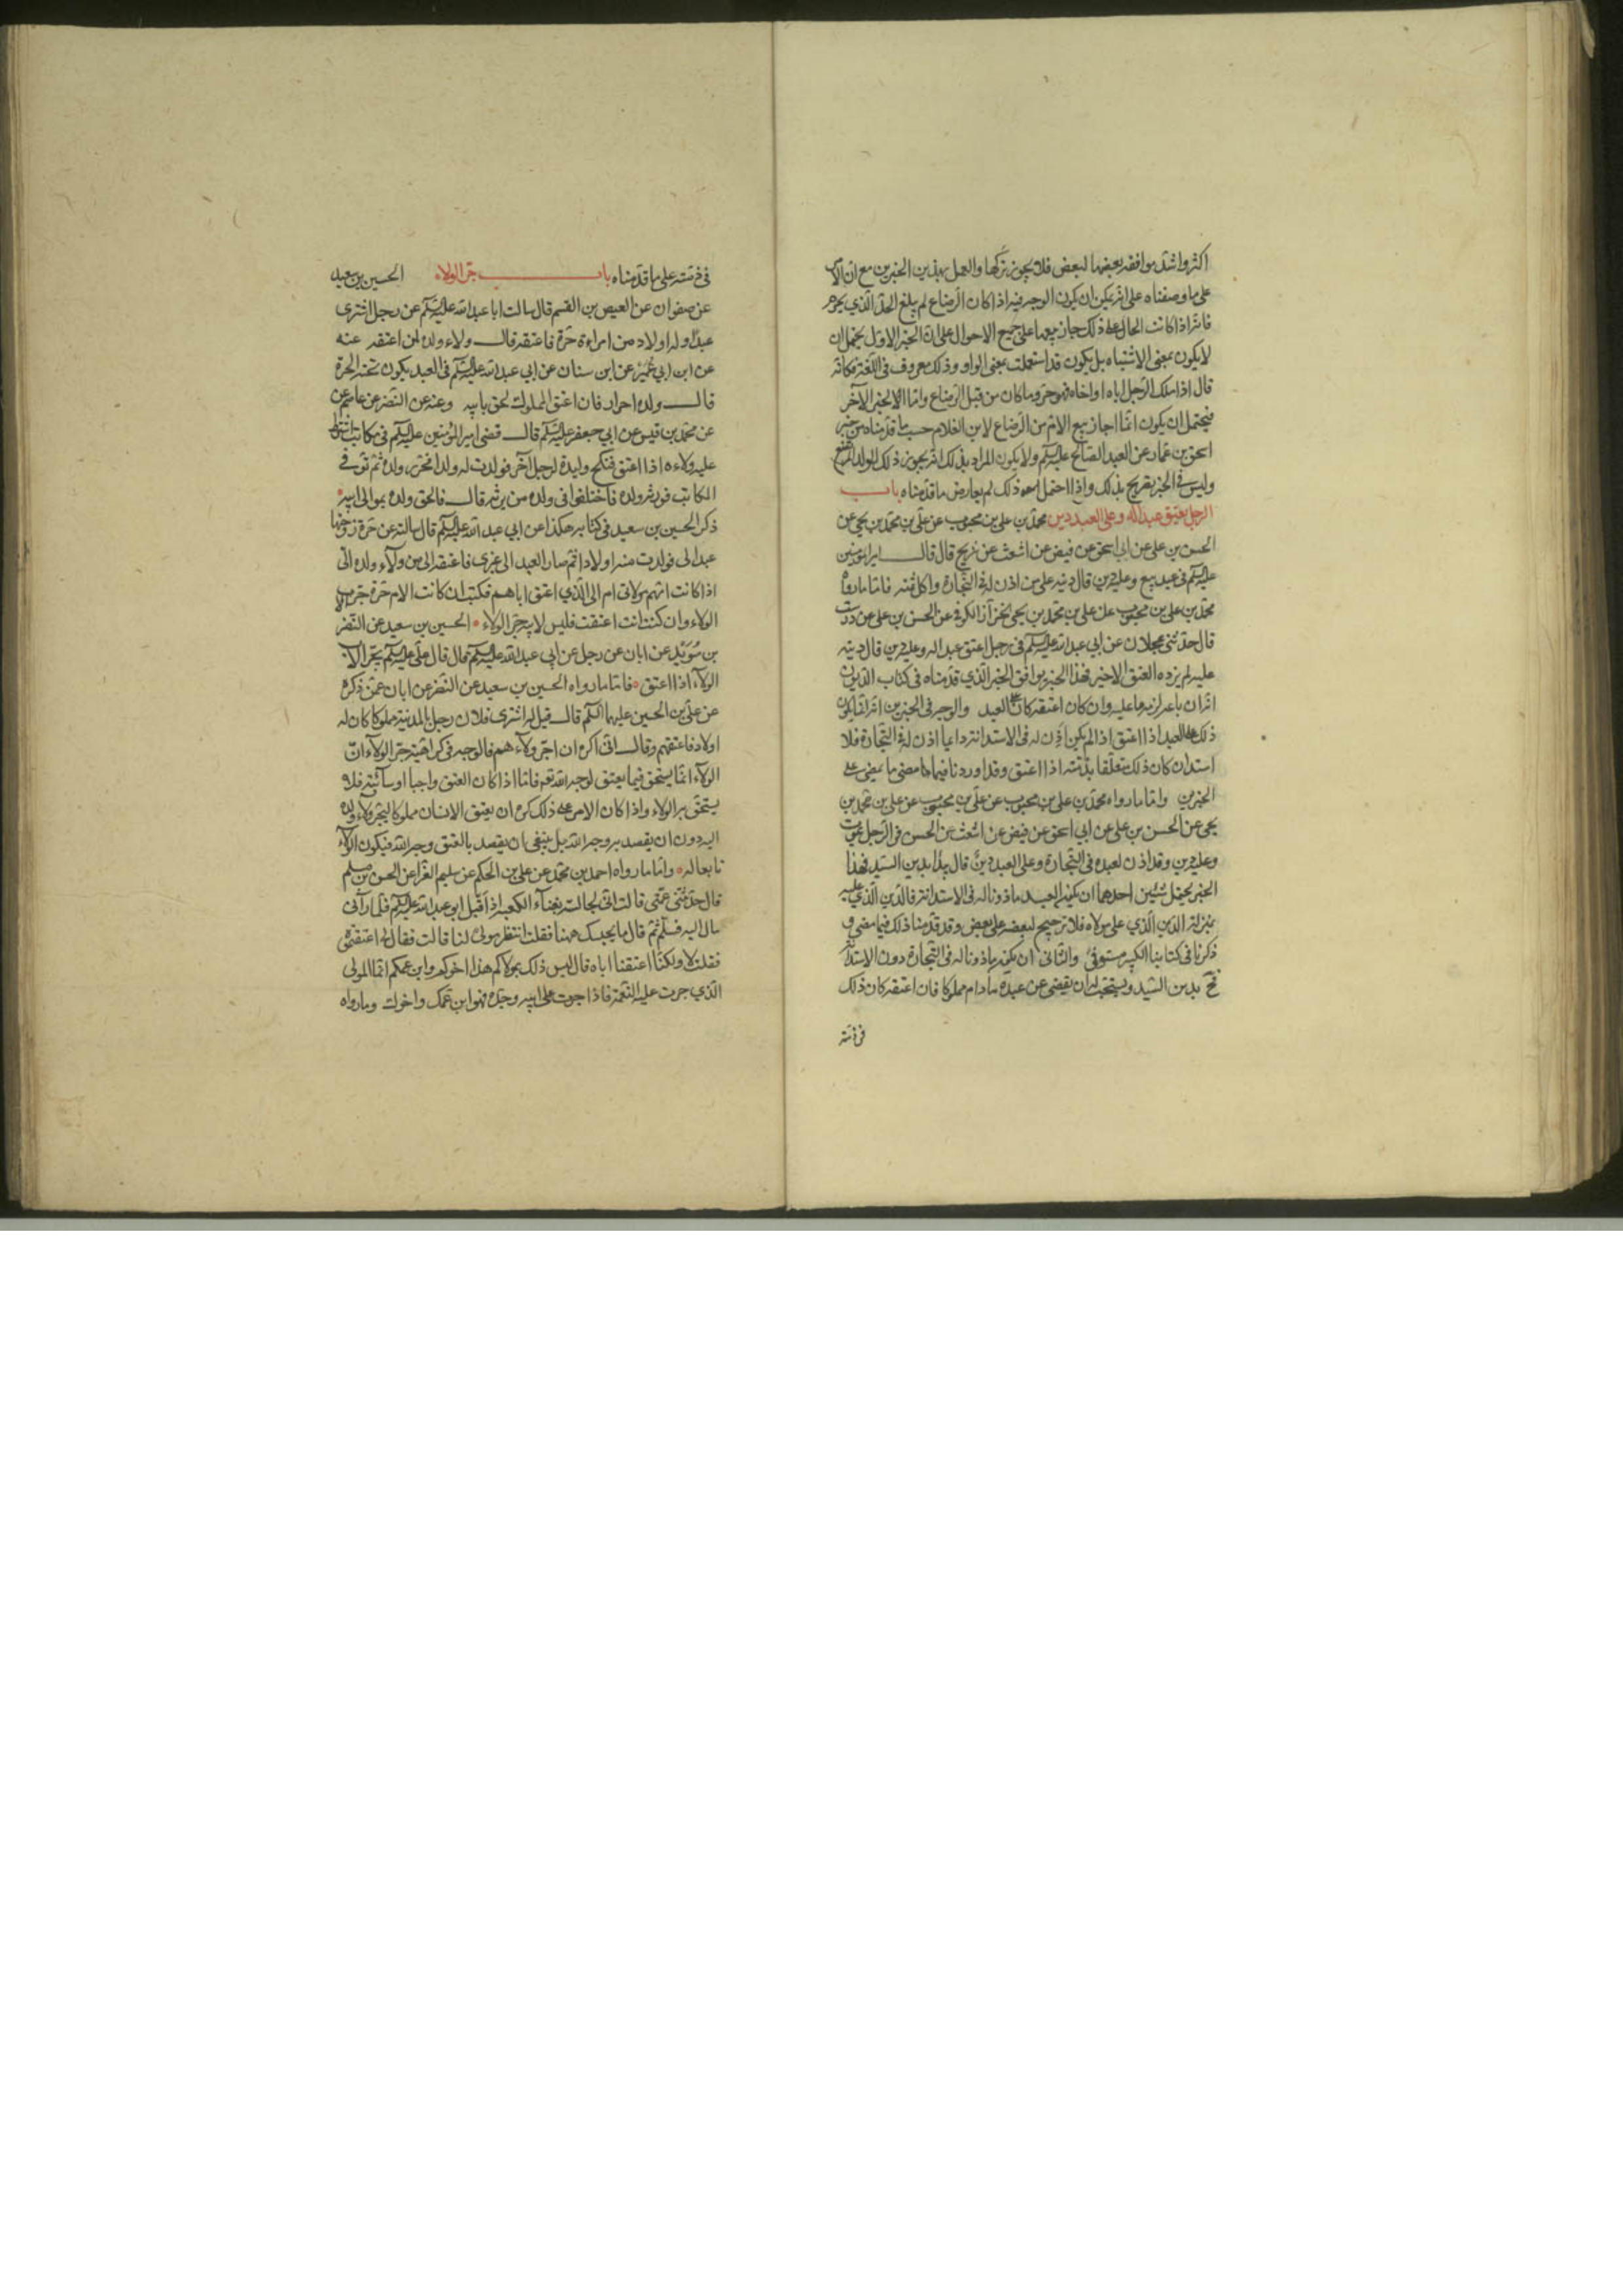 اكثر واشد موافقة بعضها لبعض فلا يجوز تركها والعمل بهذين الخبرين مع ان الامر
على ما وصفناه على انه يمكن ان يكون الوجه فيه اذا كان الرضاع لم يبلغ الحد الذي يحرم
فانه اذا كانت الحال على ذلك جاز بيعها على جميع الاحوال على ان الخبر الاول يحتمل ان
لا يكون بمعنى الاشتباه بل يكون قد استعملت بمعنى الواو وذلك معروف في اللغة فكانه
قال اذا ملك الرجل اباه او اخاه فهو حر وما كان من قبل الرضاع واما الخبر الآخر
فيحتمل ان يكون انما اجاز بيع الام من الرضاع لابن الغلام حسب ما قدمناه من خبر
اسحق بن عمار عن العبد الصالح عليه السلم ولا يكون المراد بذلك انه يجوز ذلك للولد المرتضع
وليس في الخبر تصريح بذلك واذا احتمل ذلك لم يعارض ما قدمناه باب
الرجل يعتق عبدا له وعلى العبد دين محمد بن علي بن محبوب عن علي بن محمد بن يحيى عن
الحسن بن علي عن ابي اسحق عن فيض عن اشعث عن شريح قال قال امير المؤمنين
عليه السلم في عبد بيع وعليه دين قال دينه على من اذن له في التجارة واكل ثمنه فاما ما رواه
محمد بن علي بن محبوب عن علي بن محمد بن يحيى الخزاز الكوفي عن الحسن بن علي عن درست
قال حدثني عجلان عن ابي عبد الله عليه السلم في رجل اعتق عبدا له وعليه دين قال دينه
عليه لم يزده العتق الا خيرا فهذا الخبر يوافق الخبر الذي قدمناه في كتاب الديون
انه ان باعه لزمه ما عليه وان كان اعتقه كان على العبد والوجه في الخبرين انه انما يكون
ذلك على العبد اذا اعتق اذا لم يكن اذن له في الاستدانة وانما اذن له في التجارة فلا
استدان كان ذلك متعلقا بذمته اذا اعتق وقد اوردنا فيما مضى ما
الخبرين واما ما رواه محمد بن علي بن محبوب عن علي بن محبوب عن علي بن محمد بن
يحيى عن الحسن بن علي عن ابي اسحق عن فيض عن اشعث عن الحسن في الرجل يموت
وعليه دين وقد اذن لعبده في التجارة وعلى العبد دين قال يبدا بدين السيد فهذا
الخبر يحتمل شيئين احدهما ان يكون العبد ماذونا له في الاستدانة فالدين الذي عليه
بمنزلة الدين الذي على مولاه فلا ترجيح لبعضه على بعض وقد قدمنا ذلك فيما مضى و
ذكرنا في كتابنا الكبير مستوفى والثاني ان يكون ماذونا له في التجارة دون الاستدانة
فح بدين السيد ويستحب له ان يقضي عن عبده ما دام مملوكا فان اعتقه كان ذلك
في ذمته
في ذمته على ما قدمناه باب جر الولاء الحسين بن سعيد
عن صفوان عن العيص بن القسم قال سالت ابا عبد الله عليه السلم عن رجل اشترى
عبدا وله اولاد من امراة حرة فاعتقه قال ولاء ولده لمن اعتقه عنه
عن ابن ابي عمير عن ابن سنان عن ابي عبد الله عليه السلم في العبد يكون تحته الحرة
قال ولده احرار فان اعتق المملوك لحق بابيه وعنه عن النضر عن عاصم عن
عن محمد بن قيس عن ابي جعفر عليه السلم قال قضى امير المؤمنين عليه السلم في مكاتب اشترط
عليه ولاءه اذا اعتق فنكح وليدة لرجل آخر فولدت له ولدا فحرر ولده ثم توفي
المكاتب فورثه ولده فاختلفوا في ولده من يرثه قال فالحق ولده بموالي ابيه
ذكر الحسين بن سعيد في كتابه هكذا عن ابي عبد الله عليه السلم قال سالته عن حرة زوجتها
عبدا لي فولدت منه اولادا ثم صار العبد الى غيري فاعتقه الى من ولاء ولده الي
اذا كانت امهم مولاتي ام الى الذي اعتق اباهم فكتب ان كانت الام حرة جر الاب
الولاء وان كنت انت اعتقت فليس لابيه جر الولاء الحسين بن سعيد عن النضر
بن سويد عن ابان عن رجل عن ابي عبد الله عليه السلم قال قال علي عليه السلم يجر الاب
الولاء اذا اعتق فاما ما رواه الحسين بن سعيد عن النضر عن ابان عمن ذكره
عن علي بن الحسين عليهما السلم قال قيل له اشترى فلان رجل بالمدينة مملوكا كان له
اولاد فاعتقهم وقال اني اكره ان اجر ولاءهم فالوجه في كراهية جر الولاء ان
الولاء انما يستحق فيما يعتق لوجه الله تع فاما اذا كان العتق واجبا او سائبة فلا
يستحق به الولاء واذا كان الامر على ذلك كره ان يعتق الانسان مملوكا ليجر ولاء ولده
اليه دون ان يقصد به وجه الله بل ينبغي ان يقصد بالعتق وجه الله فيكون الولاء
تابعا له واما ما رواه احمد بن محمد عن علي بن الحكم عن سليم الفرا عن الحسن بن مسلم
قال حدثتني عمتي قالت اني لجالسة بفناء الكعبة اذ اقبل ابو عبد الله عليه السلم فلما رآني
مال اليه فسلم ثم قال ما يجلسك ههنا فقلت انتظر مولى لنا قالت فقال لي اعتقتموه
فقلت لا ولكنا اعتقنا اباه قال ليس ذلك بمولاكم هذا اخوكم وابن عمكم انما المولى
الذي جرت عليه النعمة فاذا جرت على ابيه وجده فهو ابن عمك واخوك وما رواه